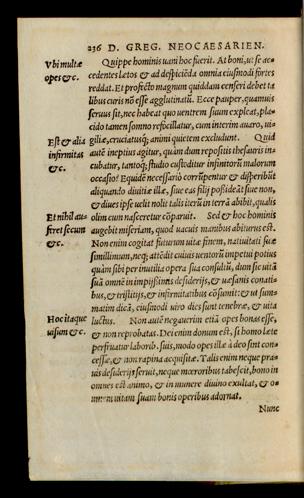 236 D. GREG. NEOCAESARIEN.
Vbi multæ
opes &c.
Quippe hominis uani hoc fuerit. At boni, ut se ac=
cedentes lætos & ad despiciēda omnia eiusmodi fortes
reddat. Et profectò magnum quiddam censeri debet ta
libus curis nō esse agglutinatū. Ecce pauper, quamuis
seruus sit, nec habeat quo uentrem suum expleat, pla=
cido tamen somno reficillatur, cum interim auaro, ui=
Est & alia
infirmitas
&c.
giliæ, cruciatusq́; animi quietem excludunt. Quid
autē ineptius agitur, quàm dum repositis thesauris in
cubatur, tantoq́; studio custoditur infinitorū malorum
occasio? Equidē necessariò corrūpentur & disperibūt
aliquando diuitiæ illæ, siue eas filij possideāt siue non,
& diues ipse uelit nolit talis iterū in terrā abibit, qualis
Et nihil au
feret secum
&c.
olim cum nasceretur cōparuit. Sed & hoc hominis
augebit miseriam, quod uacuis manibus abiturus est.
Non enim cogitat futurum uitæ finem, natiuitati suæ
simillimum, neq́; attēdit cuiuis uentorū impetui potius
quàm sibi per inutilia opera sua consultū, dum sic uitā
suā omnē in impijssimis desiderijs, & uæsanis conatí=
bus, & tristitijs, & infirmitatibus cōsumit: & ut sum=
matim dicā, eiusmodi uiro dies sunt tenebræ, & uita
Hoc itaque
uisum &c.
luctus. Non autē negauerim etiā opes bonas esse,
& non reprobatas. Dei enim donum est, si homo læte
perfruatur laborib. suis, modo opes illæ à deo sint con=
cessæ, & non rapina acquisitæ. Talis enim neque pra=
uis desiderijs seruit, neque mœroribus tabescit, bono in
omnes est animo, & in munere diuino exultat, & o=
mnem uitam suam bonis operibus adornat.
Nunc